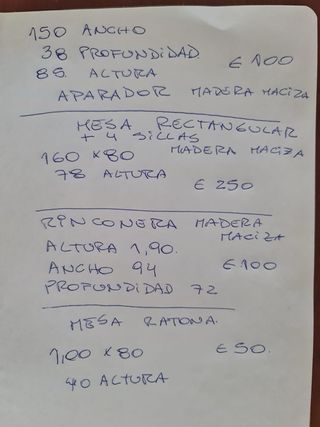 150 ANCHO
38 PROFUNDIDAD
€ 100
85 ALTURA
APARADOR MADERA MACIZA
MESA RECTANGULAR
+ 4 SILLAS
160 x 80 MADERA MACIZA
78 ALTURA
€ 250
RINCONERA MADERA
MACIZA
ALTURA 1,90.
ANCHO 94 € 100
PROFUNDIDAD 72
MESA RATONA.
1,00 x 80 € 50.
40 ALTURA